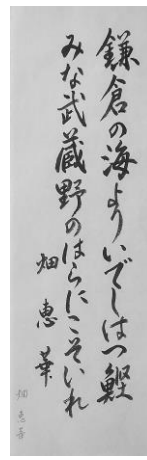 鎌倉の海よりいでしはつ鰹
みな武蔵野のはらにこそいれ
畑恵華
畑恵